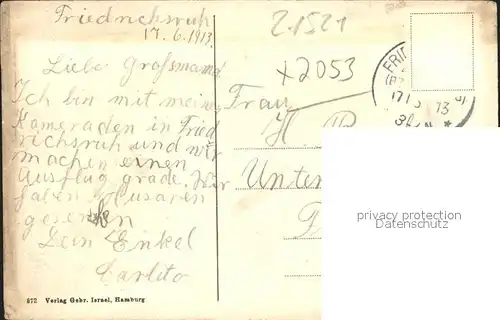 Friedrichsruh
17.6.1913.
Liebe Grossmama
Ich bin mit meinen
Kameraden in Fried
richsruh und wir
machen einen
Ausflug grade. Wir
haben Husaren
gesehen
Dein Enkel
Carlito
21521
x2053
Frau
H.
Unter
FRI
privacy protection
Datenschutz
872 Verlag Gebr. Israel, Hamburg